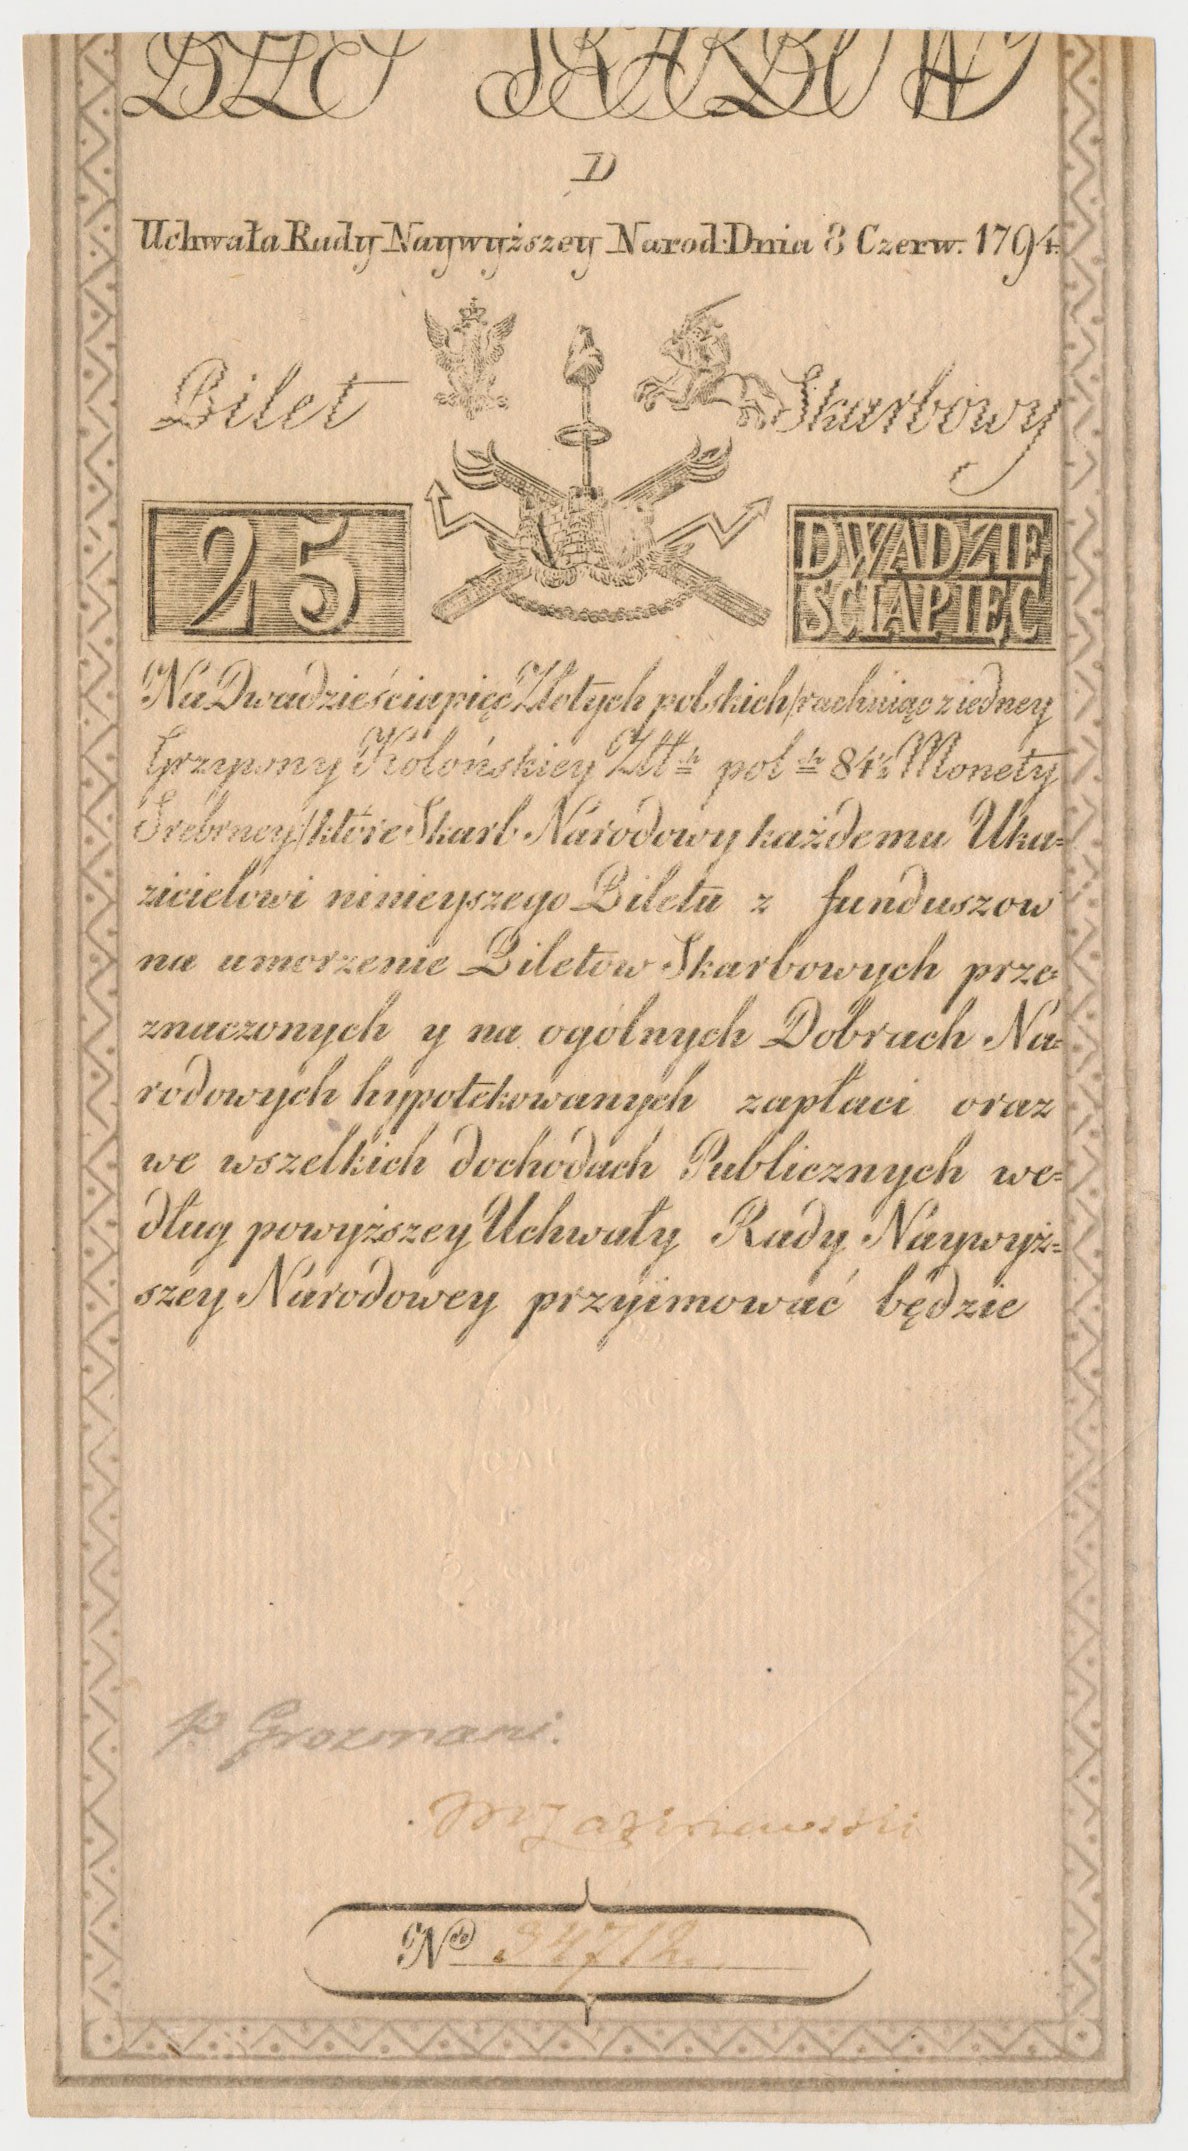 BILET SKARBOWY
D
Uchwała Rady Naywyższey Narod: Dnia 8 Czerw. 1794.
Bilet Skarbowy
25 DWADZIE
ŚCIAPIĘĆ
Na Dwadzieściapięć Złotych polskich/rachuiąc z iedney
Grzywny Kolońskiey Złł: pol: 84½ Monety
Srebrney/które Skarb Narodowy każdemu Uka=
zicielowi ninieyszego Biletu z funduszow
na umorzenie Biletow Skarbowych prze=
znaczonych y na ogólnych Dobrach Na=
rodowych hypotekowanych zapłaci oraz
we wszelkich dochodach Publicznych we=
dług powyższey Uchwały Rady Naywyż=
szey Narodowey przyimować będzie
No 34712.